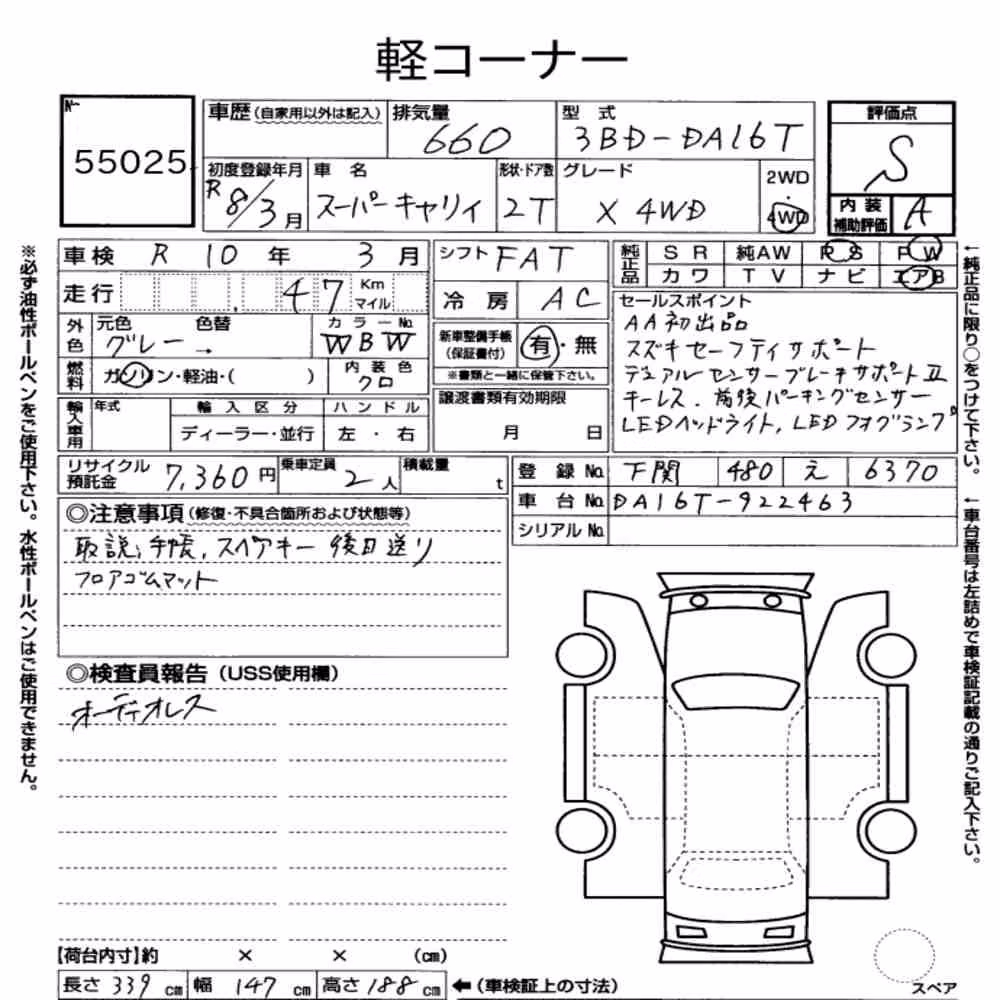 軽コーナー
No.
55025
車歴(自家用以外は記入)
排気量
660
型式
3BD-DA16T
評価点
S
初度登録年月
R8/3月
車名
スーパーキャリィ
形状・ドア数
2T
グレード
X 4WD
2WD
・
4WD
内装
補助評価
A
車検 R 10年 3月
シフト FAT
純正品
SR 純AW PS PW
カワ TV ナビ エアB
走行 47 Km マイル
冷房 AC
セールスポイント
AA初出品
スズキセーフティサポート
デュアルセンサーブレーキサポートⅡ
キーレス、前後パーキングセンサー
LEDヘッドライト, LEDフォグランプ
外色
元色 色替
グレー →
カラーNo.
WBW
新車整備手帳
(保証書付)
有・無
※書類と一緒に保管下さい。
燃料
ガソリン・軽油・( )
内装色
クロ
輸入車用
年式
輸入区分
ディーラー・並行
ハンドル
左・右
譲渡書類有効期限
月 日
リサイクル
預託金
7,360円
乗車定員
2人
積載量
t
登録No. 下関 480 え 6370
車台No. DA16T-922463
シリアルNo.
◎注意事項(修復・不具合箇所および状態等)
取説, 手帳, スペアキー 後日送り
フロアゴムマット
◎検査員報告(USS使用欄)
オーディオレス
【荷台内寸】約 × × (cm)
長さ 339 cm 幅 147 cm 高さ 188 cm ←(車検証上の寸法)
スペア
※必ず油性ボールペンをご使用下さい。水性ボールペンはご使用できません。
←純正品に限り○をつけて下さい。
←車台番号は左詰めで車検証記載の通りご記入下さい。